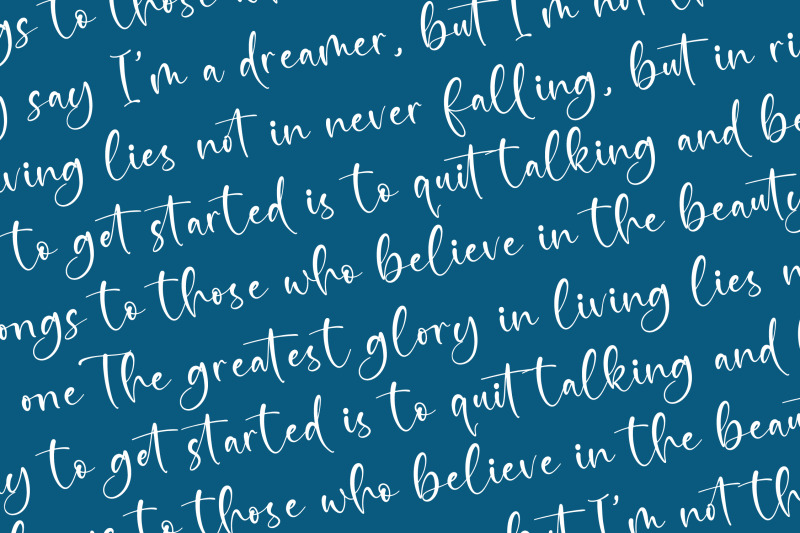 to those
say I'm a dreamer, but I'm not
lies not in never falling, but in
to get started is to quit talking and
to those who believe in the beauty
one The greatest glory in living lies
to get started is to quit talking and
to those who believe in the
but I'm not